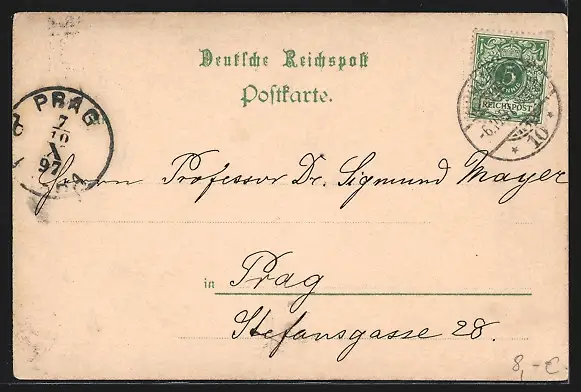 Deutsche Reichspost
Postkarte.
5
REICHSPOST
10
PRAG
7
10
X
97
Herrn Professor Dr. Sigmund Mayer
in Prag
Stefansgasse 28.
8,-€